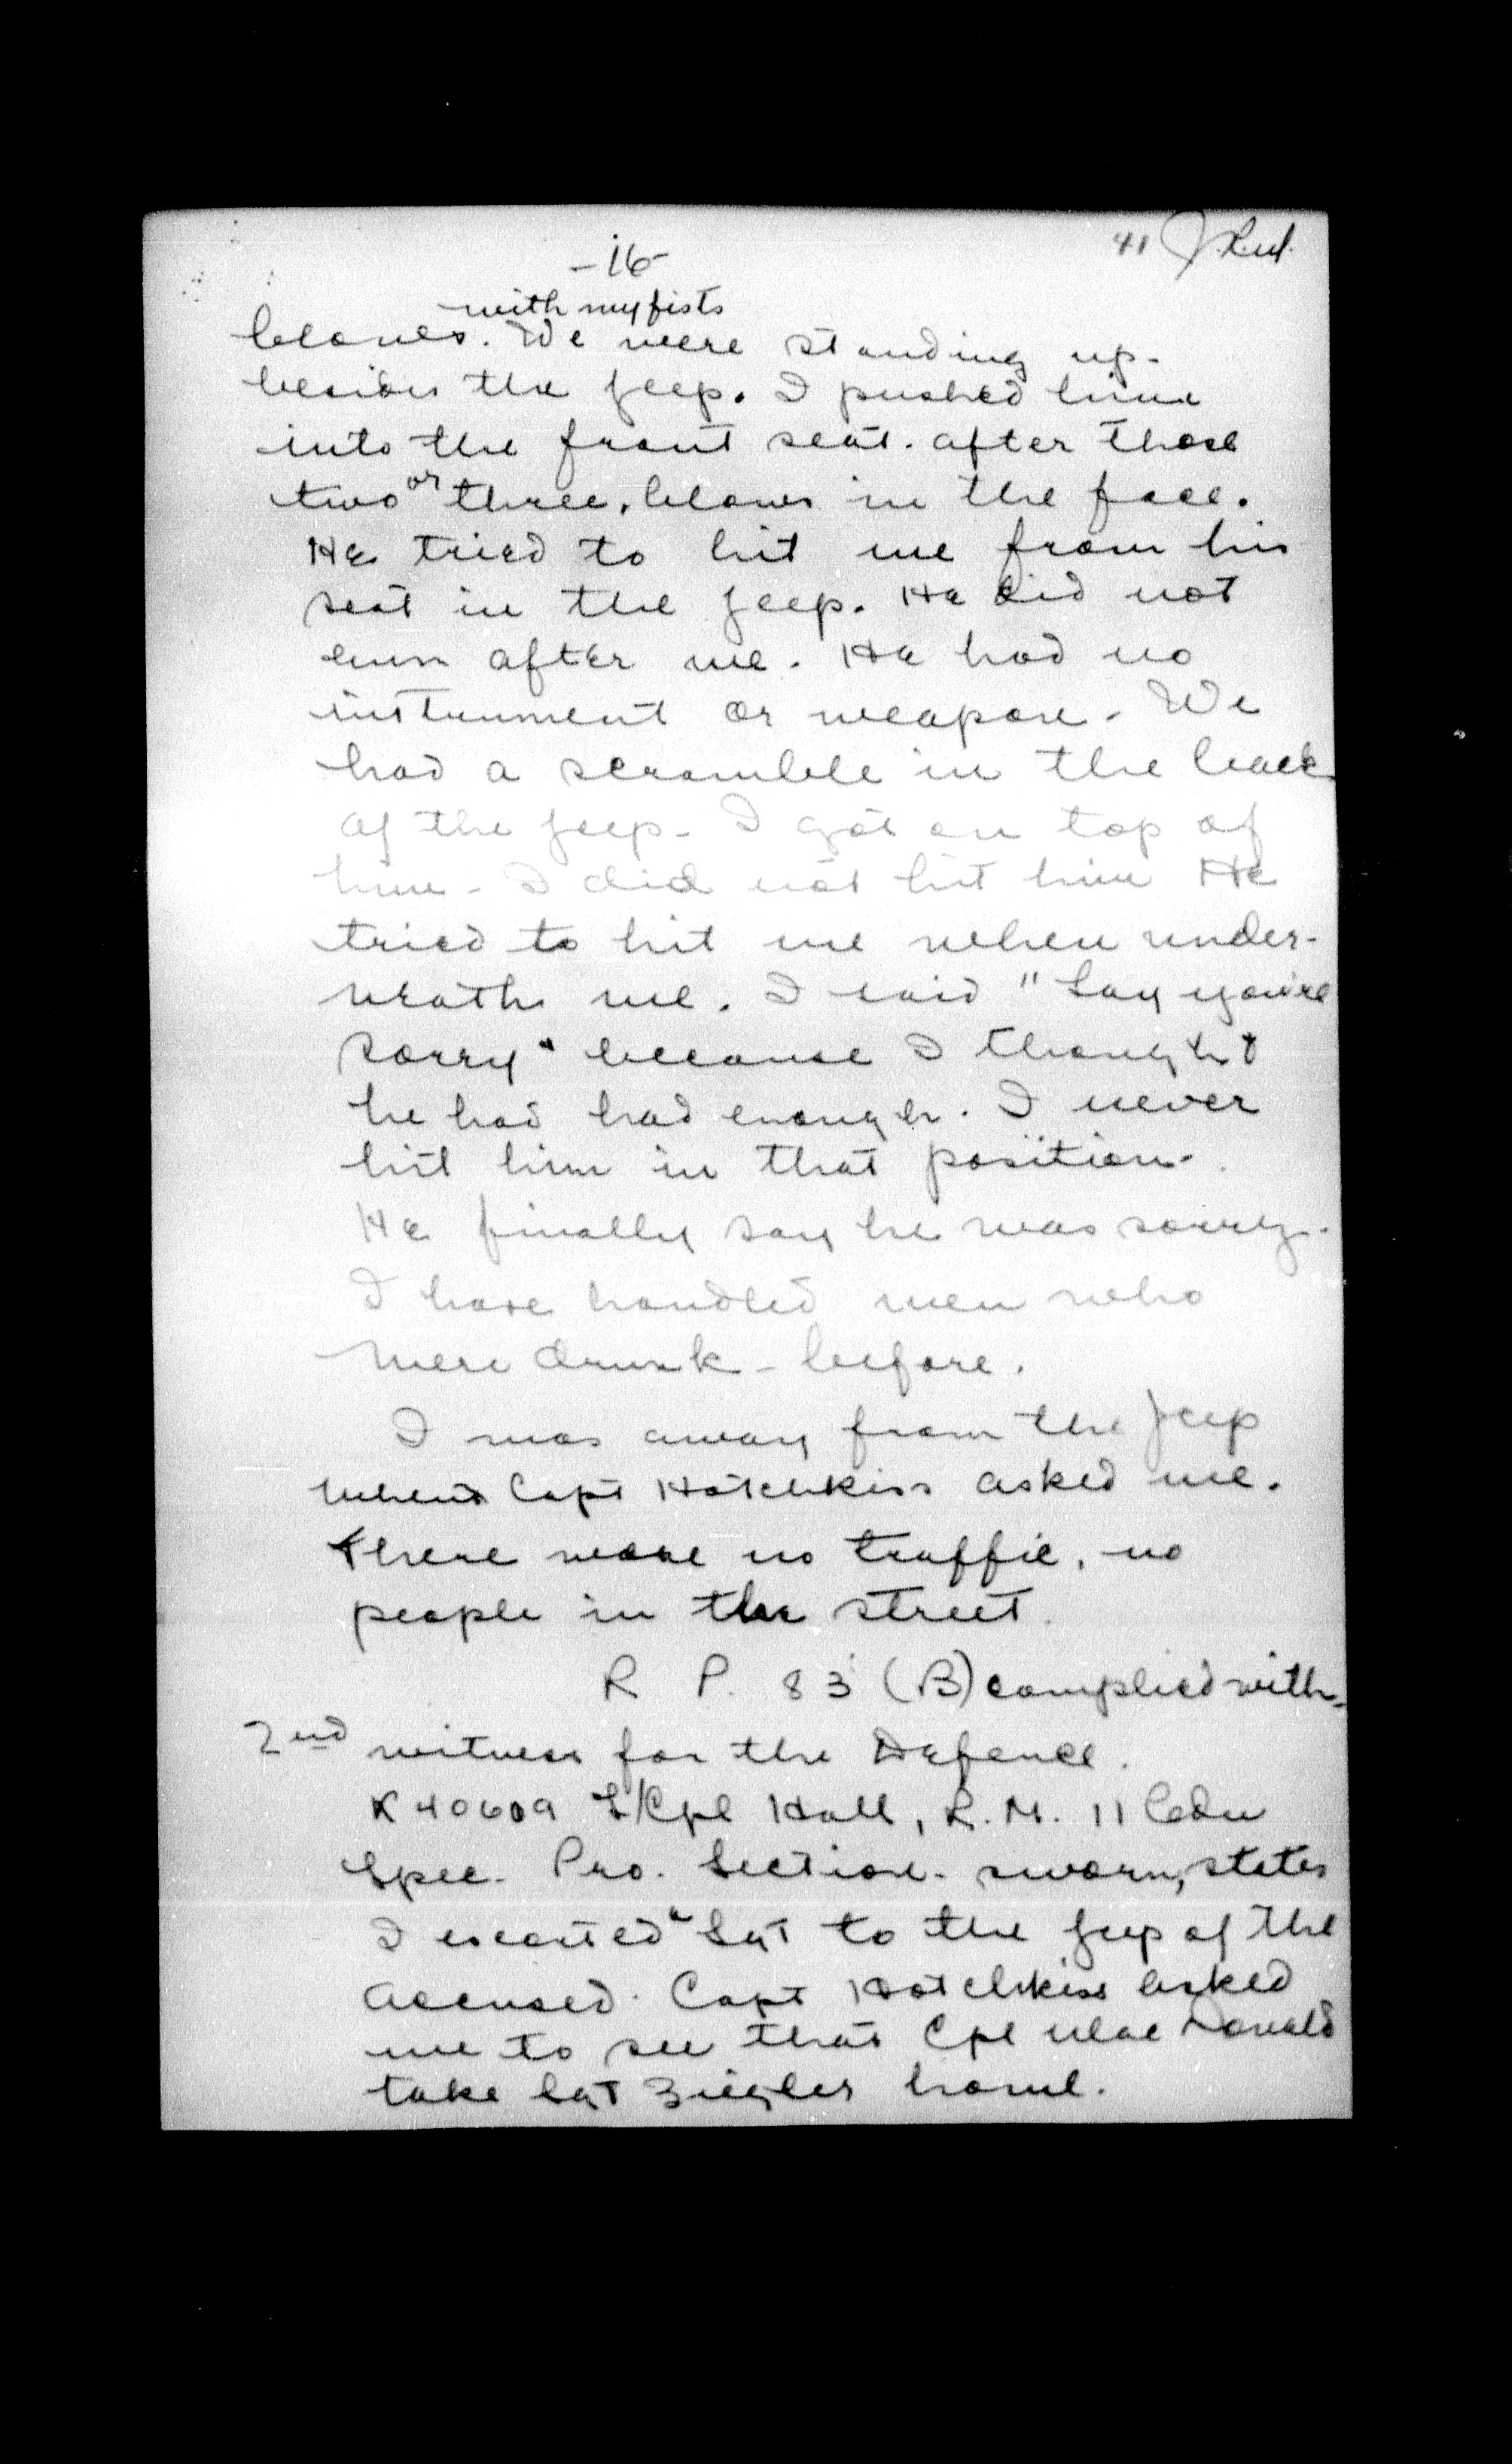 41
-16-
with my fists
blows. We were standing up-
besides the jeep. I pushed him
into the front seat. after those
two or three, blows in the face.
He tried to hit me from his
seat in the jeep. He did not
run after me. He had no
instrument or weapon. We
had a scramble in the back
of the jeep - I got on top of
him - I did not hit him He
tried to hit me when under-
neath me. I said "Say you're
sorry" because I thought
he had had enough. I never
hit him in that position.
He finally say he was sorry.
I have handled men who
were drunk - before.
I was away from the jeep
when Capt Hotchkiss asked me.
There were no traffic, no
people in the street.
R P. 83 (B) complied with.
2nd witness for the Defence.
K 40609 L/Cpl Hall, R.M. 11 Cdn
Spec. Pro. Section. sworn, states
I escorted a Sgt to the jeep of the
accused. Capt Hotchkiss asked
me to see that Cpl MacDonald
take Sgt Ziegler home.